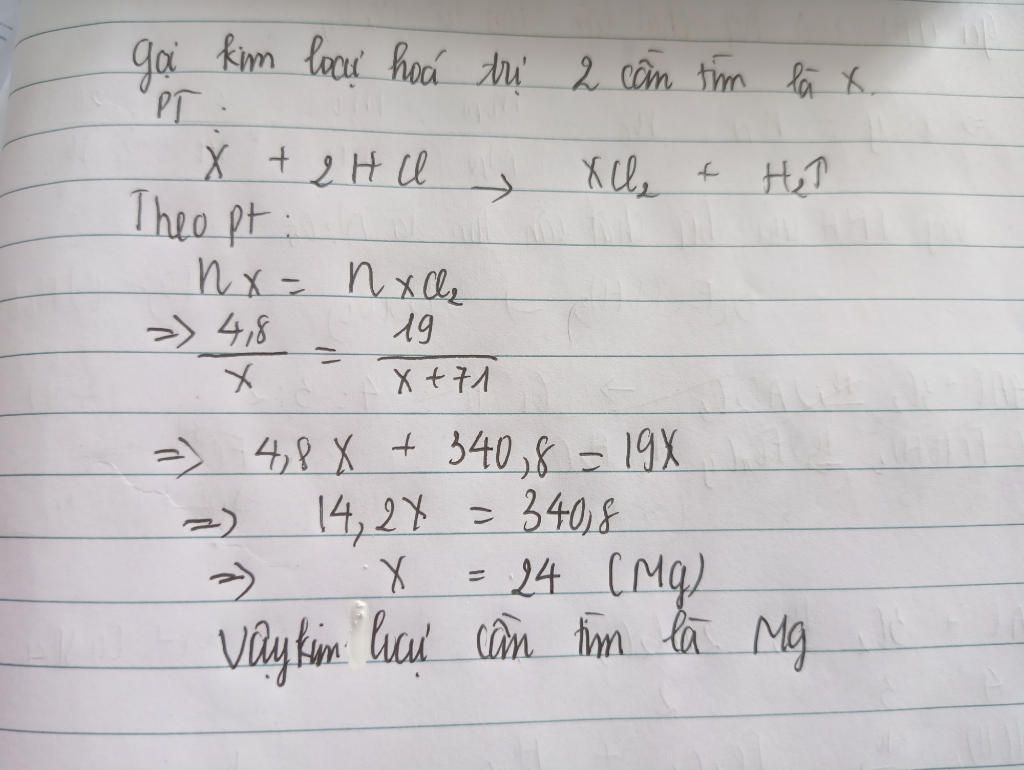 Gọi kim loại hoá trị 2 cần tìm là X.
PT :
X + 2HCl → XCl₂ + H₂↑
Theo pt :
nX = nXCl₂
=> 4,8/X = 19/(X+71)
=> 4,8X + 340,8 = 19X
=> 14,2X = 340,8
=> X = 24 (Mg)
Vậy kim loại cần tìm là Mg